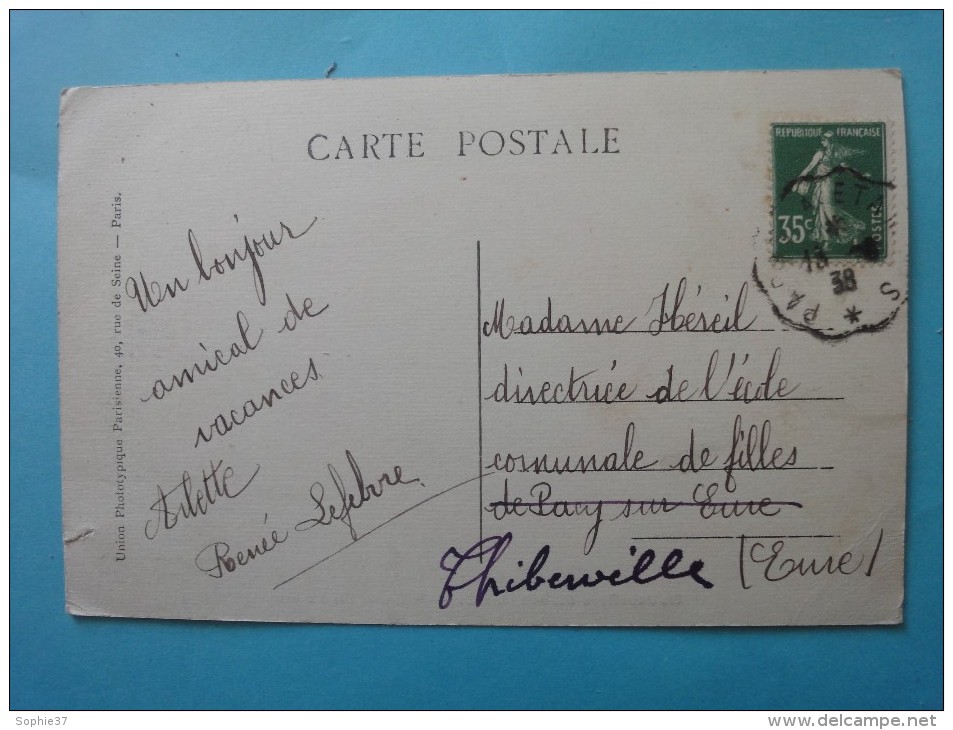 CARTE POSTALE
REPUBLIQUE FRANÇAISE
35c
POSTES
13
38
Union Phototypique Parisienne, 40, rue de Seine — Paris.
Un bonjour
amical de
vacances
Arlette
Renée Lefebvre
Madame Héreil
directrice de l'école
comunale de filles
de Pacy sur Eure
Thiberville (Eure)
Sophie37
www.delcampe.net